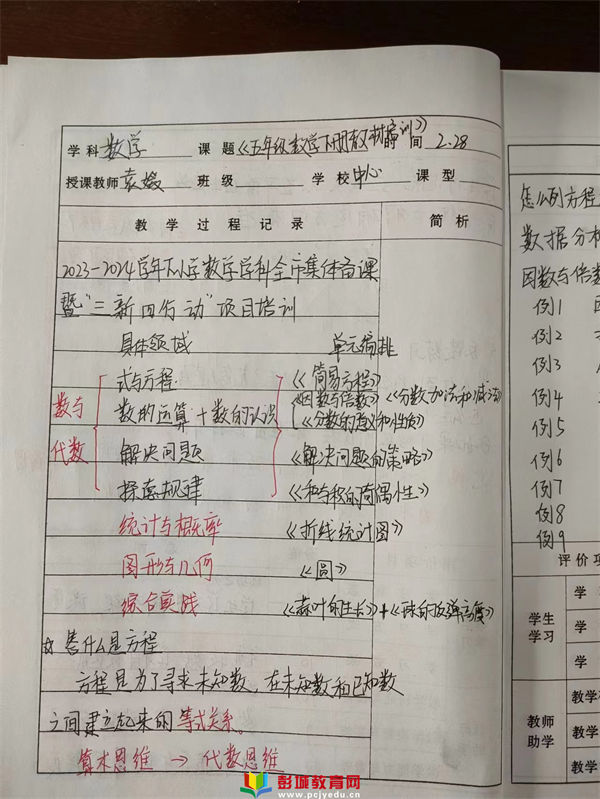 学科 数学 课题《五年级数学下册教材培训》时间 2.28
授课教师 袁媛 班级 学校 中心 课型
教学过程记录 简析
2023-2024学年下小学数学学科全市集体备课
暨“三新四行动”项目培训
具体领域 单元编排
式与方程 《简易方程》
数与 数的运算+数的认识 《因数与倍数》《分数加法和减法》
《分数的意义和性质》
代数 解决问题 《解决问题的策略》
探索规律 《和与积的奇偶性》
统计与概率 《折线统计图》
图形与几何 《圆》
综合实践 《蒜叶的生长》+《球的反弹高度》
☆ 什么是方程
方程是为了寻求未知数,在未知数和已知数
之间建立起来的等式关系。
算术思维 → 代数思维
怎么列方程
数据分析
因数与倍数
例1
例2
例3
例4
例5
例6
例7
例8
例9
评价项
学生
学习
学
学
学
教师
助学
教学
教学
教学
彭城教育网
www.pcjyedu.cn